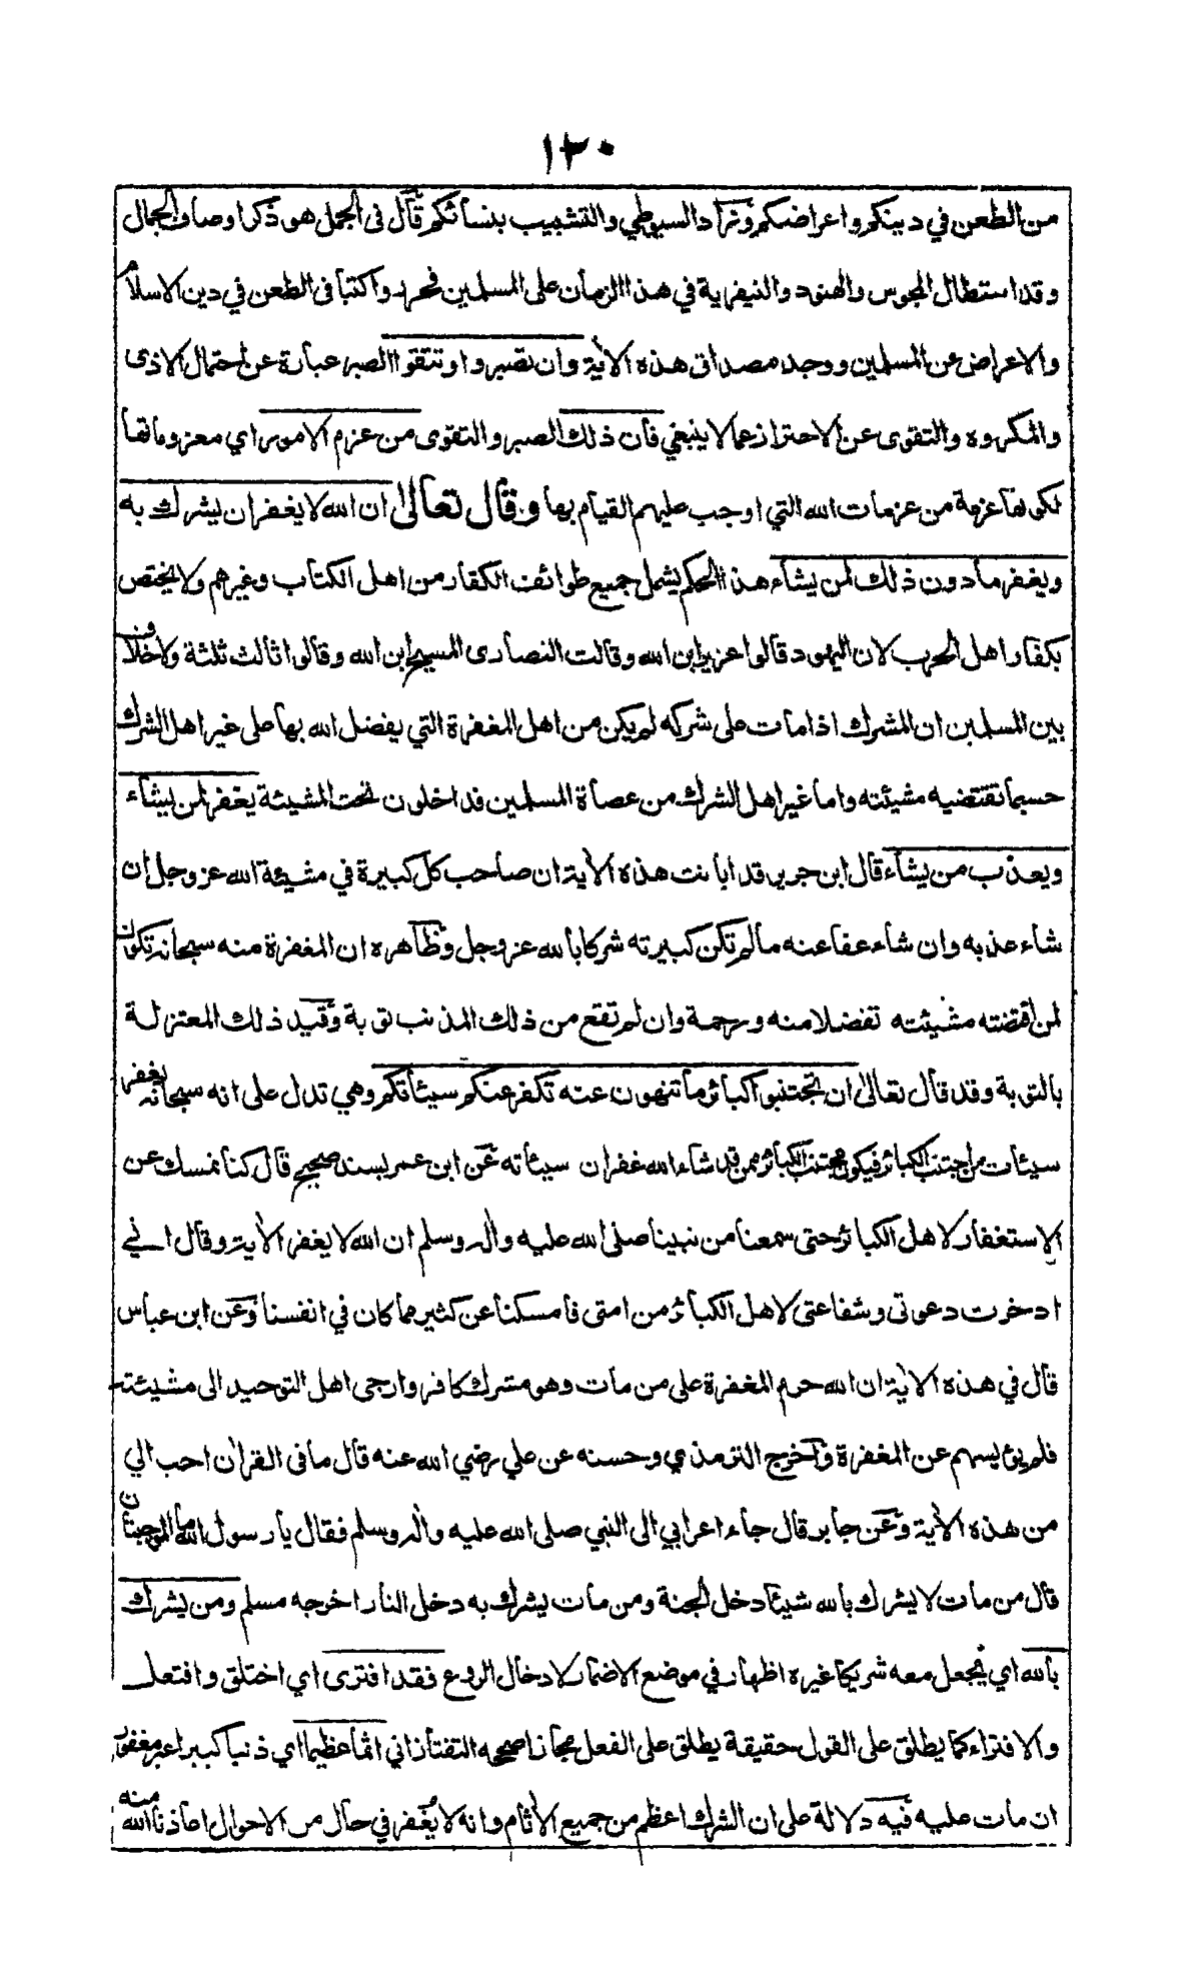 ١٣٠
من الطعن في دينكم واعراضكم وزاد السيوطي والتشبيب بنسائكم قال فى الجمل هو ذكر اوصاف الجمال
وقد استطال المجوس والهنود والنيفرية في هذا الزمان على المسلمين فحرروا كتبا فى الطعن في دين الاسلام
والاعراض عن المسلمين ووجد مصداق هذه الاٰية وان تصبروا وتتقوا الصبر عبارة عن احتمال الاذى
والمكروه والتقوى عن الاحتراز عما لا ينبغي فان ذلك الصبر والتقوى من عزم الامور اي معزوماتها
لكونها عزمة من عزمات الله التي اوجب عليهم القيام بها وقال تعالىٰ ان الله لا يغفر ان يشرك به
ويغفر ما دون ذلك لمن يشاء هذا الحكم يشمل جميع طوائف الكفار من اهل الكتاب وغيرهم ولا يختص
بكفار اهل الحرب لان اليهود قالوا عزير ابن الله وقالت النصارى المسيح ابن الله وقالوا ثالث ثلثة ولا خلاف
بين المسلمين ان المشرك اذا مات على شركه لم يكن من اهل المغفرة التي يفضل الله بها على غير اهل الشرك
حسبما تقتضيه مشيئته واما غير اهل الشرك من عصاة المسلمين فداخلون تحت المشيئة يغفر لمن يشاء
ويعذب من يشاء قال ابن جرير قد ابانت هذه الاٰية ان صاحب كل كبيرة في مشيئة الله عز وجل ان
شاء عذبه وان شاء عفا عنه ما لم تكن كبيرته شركا بالله عز وجل وظاهره ان المغفرة منه سبحانه تكون
لمن اقتضته مشيئته تفضلا منه ورحمة وان لم تقع من ذلك المذنب توبة وقيد ذلك المعتزلة
بالتوبة وقد قال تعالىٰ ان تجتنبوا كبائر ما تنهون عنه نكفر عنكم سيئاتكم وهي تدل على انه سبحانه يغفر
سيئات من اجتنب الكبائر فيكون مجتنب الكبائر ممن قد شاء الله غفران سيئاته عن ابن عمر بسند صحيح قال كنا نمسك عن
الاستغفار لاهل الكبائر حتى سمعنا من نبينا صلى الله عليه واٰله وسلم ان الله لا يغفر الاٰية وقال اني
ادخرت دعوتى وشفاعتى لاهل الكبائر من امتى فامسكنا عن كثير مما كان في انفسنا وعن ابن عباس
قال في هذه الاٰية ان الله حرم المغفرة على من مات وهو مشرك كافر وارجى اهل التوحيد الى مشيئته
فلم يؤيسهم عن المغفرة واخرج الترمذي وحسنه عن علي رضي الله عنه قال ما فى القراٰن احب الي
من هذه الاٰية وعن جابر قال جاء اعرابي الى النبي صلى الله عليه واٰله وسلم فقال يا رسول الله ما الموجبتان
قال من مات لا يشرك بالله شيئا دخل الجنة ومن مات يشرك به دخل النار اخرجه مسلم ومن يشرك
بالله اي يجعل معه شريكا غيره اظهار في موضع الاضمار لادخال الروع فقد افترى اي اختلق وافتعل
والافتراء كما يطلق على القول حقيقة يطلق على الفعل مجازا صححه التفتازاني اثما عظيما اي ذنبا كبيرا غير مغفور
ان مات عليه فيه دلالة على ان الشرك اعظم من جميع الاٰثام وانه لا يغفر في حال من الاحوال اعاذنا الله منه